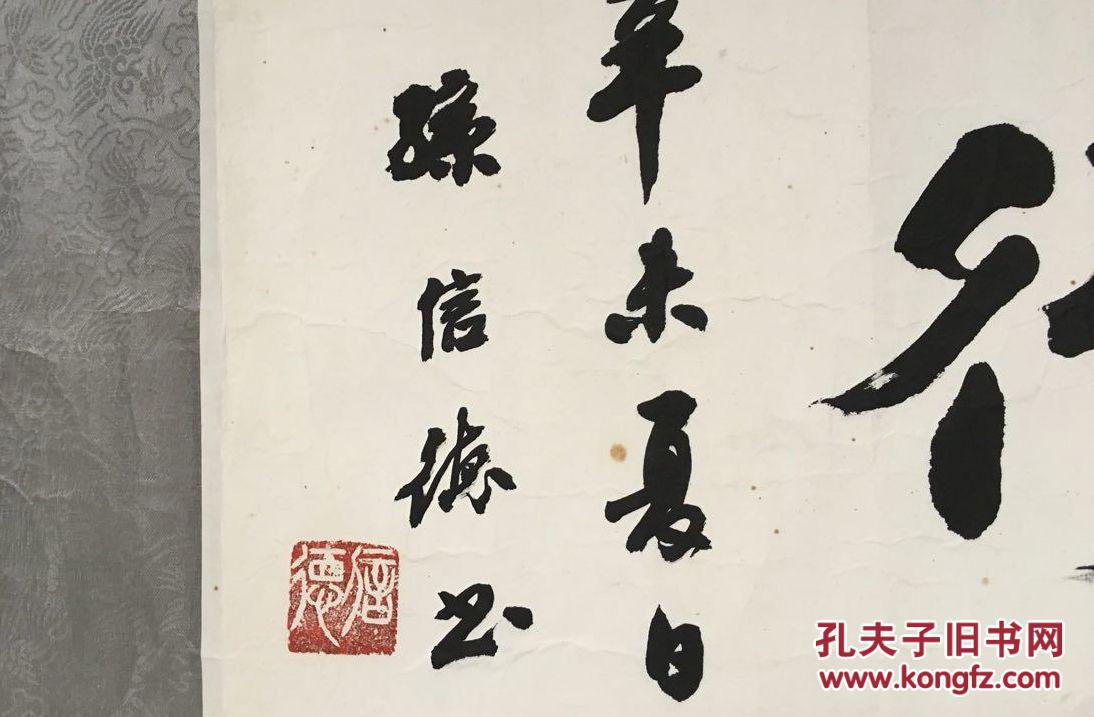 辛未夏日
孫信德书
信德
孔夫子旧书网
www.kongfz.com